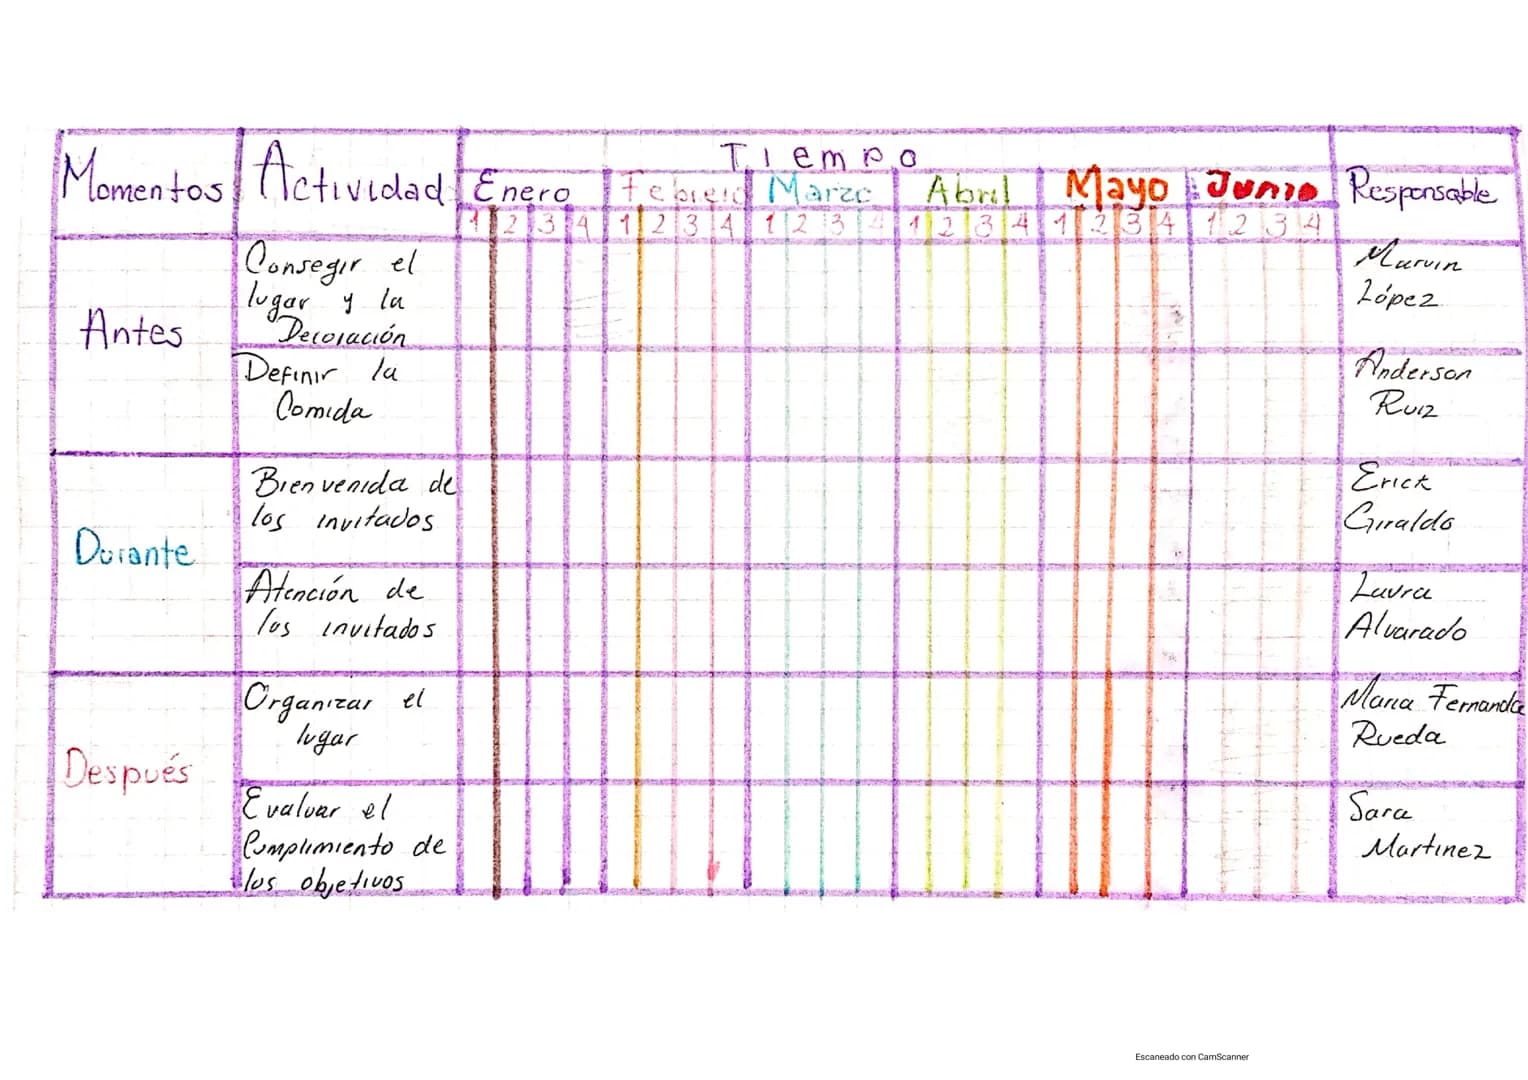 Tiempo
Momentos Actividad Enero Febrero Marzo Abril Mayo Junio Responsable
1 2 3 4 1 2 3 4 1 2 3 4 1 2 3 4 1 2 3 4 1 2 3 4
Antes
Consegir el
lugar y la
Decoración
Marvin
López
Definir la
Comida
Anderson
Ruiz
Durante
Bienvenida de
los invitados
Erick
Giraldo
Atención de
los invitados
Laura
Alvarado
Después
Organizar el
lugar
Maria Fernanda
Rueda
Evaluar el
Cumplimiento de
los objetivos
Sara
Martinez
Escaneado con CamScanner